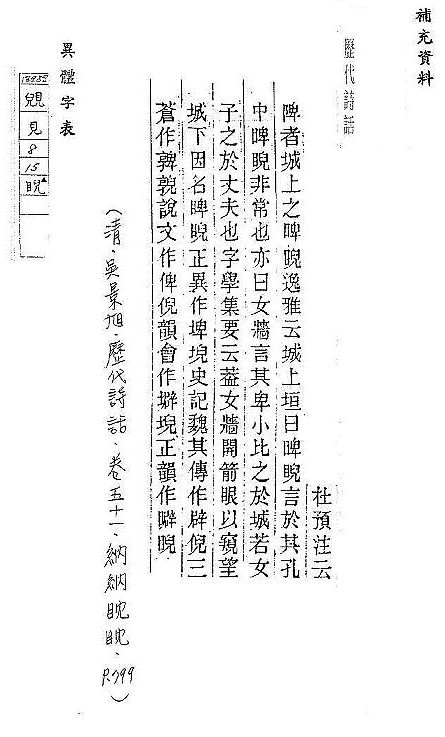 補充資料
歷代詩話
杜預注云
陴者城上之睥睨逸雅云城上垣曰睥睨言於其孔
中睥睨非常也亦曰女牆言其卑小比之於城若女
子之於丈夫也字學集要云葢女牆開箭眼以窺望
城下因名睥睨正異作埤堄史記魏其傳作辟倪三
蒼作顊䫌說文作俾倪韻會作壀堄正韻作䁹睨
異體字表
見
8
15
睨
(清.吳景旭.歷代詩話.卷五十一.納納睨睨.
P.599)